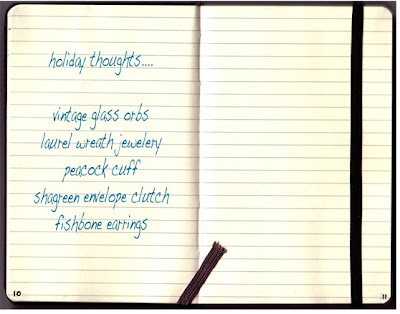 holiday thoughts....
vintage glass orbs
laurel wreath jewelery
peacock cuff
shagreen envelope clutch
fishbone earrings
10
11